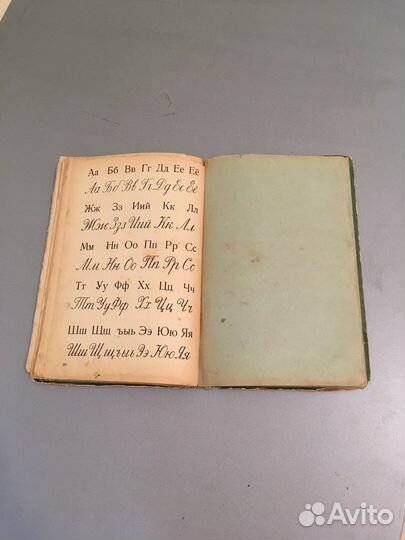 Аа Бб Вв Гг Дд Ее Ёё
Аа Бб Вв Гг Дд Ее Ёё
Жж Зз Иий Кк Лл
Жж Зз Иий Кк Лл
Мм Нн Оо Пп Рр Сс
Мм Нн Оо Пп Рр Сс
Тт Уу Фф Хх Цц Чч
Тт Уу Фф Хх Цц Чч
Шш Щщ ъыь Ээ Юю Яя
Шш Щщ ъыь Ээ Юю Яя
Avito